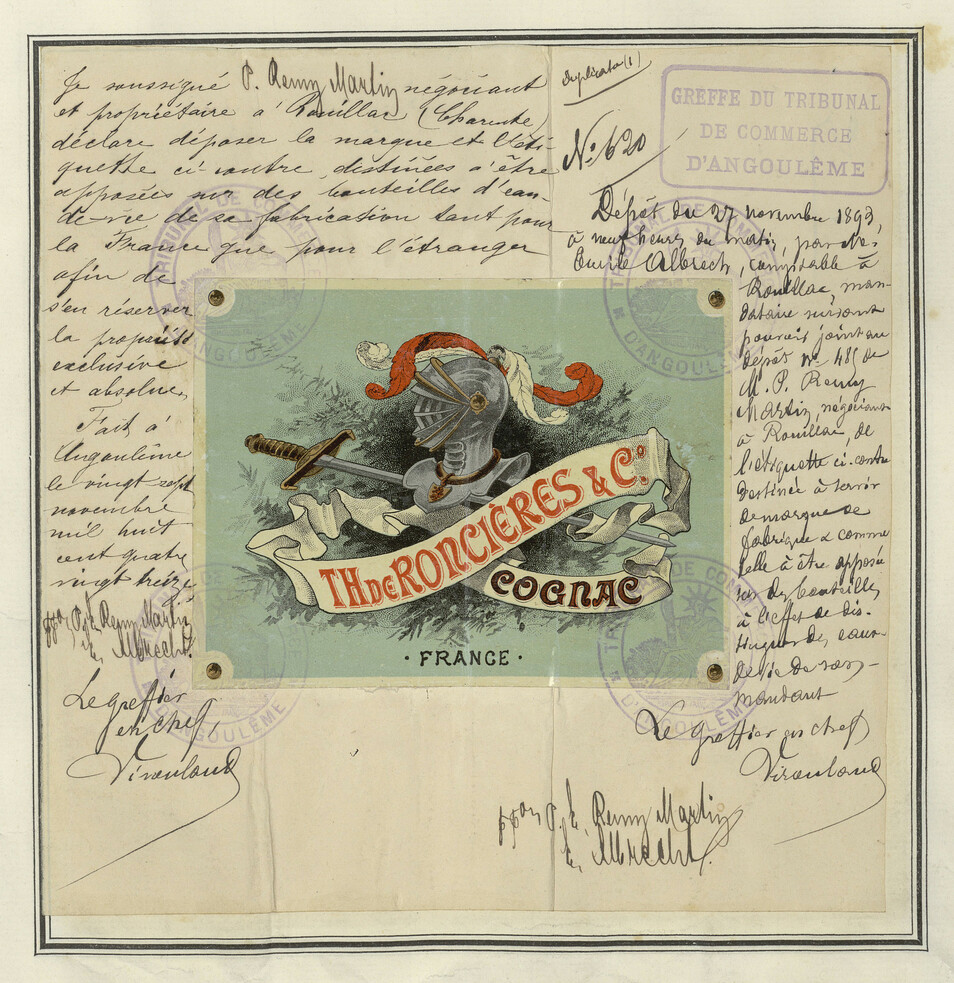 Je soussigné P. Remy Martin négociant
et propriétaire à Rouillac (Charente)
déclare déposer la marque et l'éti-
quette ci-contre destinées à être
apposées sur des bouteilles d'eau-
de-vie de sa fabrication tant pour
la France que pour l'étranger
afin de
s'en réserver
la propriété
exclusive
et absolue.
Fait à
Angoulême
le vingt sept
novembre
mil huit
cent quatre
vingt treize
ppon P. E. Remy Martin
E. Albrecht.
Le greffier
en chef,
Viroulaud
Duplicata (1)
No. 620
GREFFE DU TRIBUNAL
DE COMMERCE
D'ANGOULÊME
Dépôt du 27 novembre 1893,
à neuf heures du matin, par Mr.
Emile Albrech, comptable à
Rouillac, man-
dataire suivant
pouvoir joint au
dépôt no. 481 de
M. P. Remy
Martin, négociant
à Rouillac, de
l'étiquette ci-contre
destinée à servir
de marque de
fabrique & comme
telle à être apposée
sur des bouteilles
à l'effet de dis-
tinguer des eaux-
de-vie de son
mandant
Le greffier en chef,
Viroulaud
ppon P. E. Remy Martin
E. Albrecht.
TH DE RONCIÈRES & Co.
COGNAC
· FRANCE ·
TRIBUNAL DE COMMERCE
D'ANGOULÊME
TRIBUNAL DE COMMERCE
D'ANGOULÊME
TRIBUNAL DE COMMERCE
D'ANGOULÊME
TRIBUNAL DE COMMERCE
D'ANGOULÊME